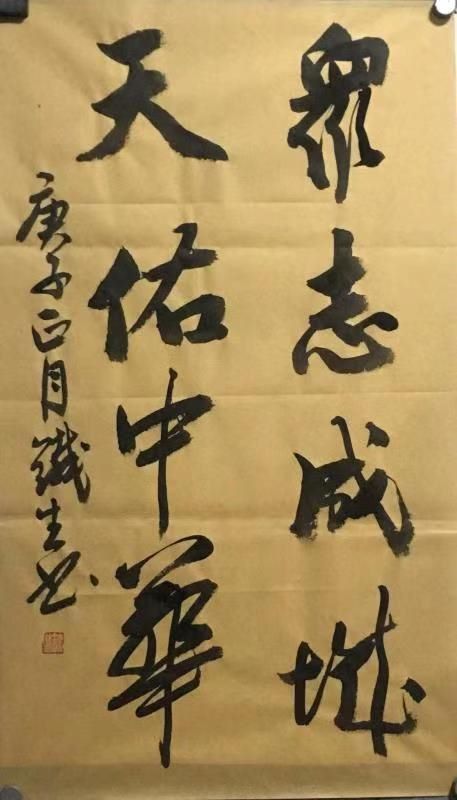 眾志成城
天佑中華
庚子正月鐵生书